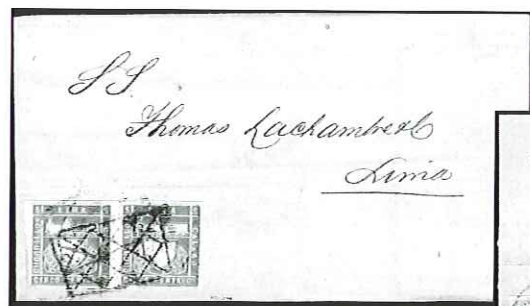 S S
Thomas Lachambre &C
Lima